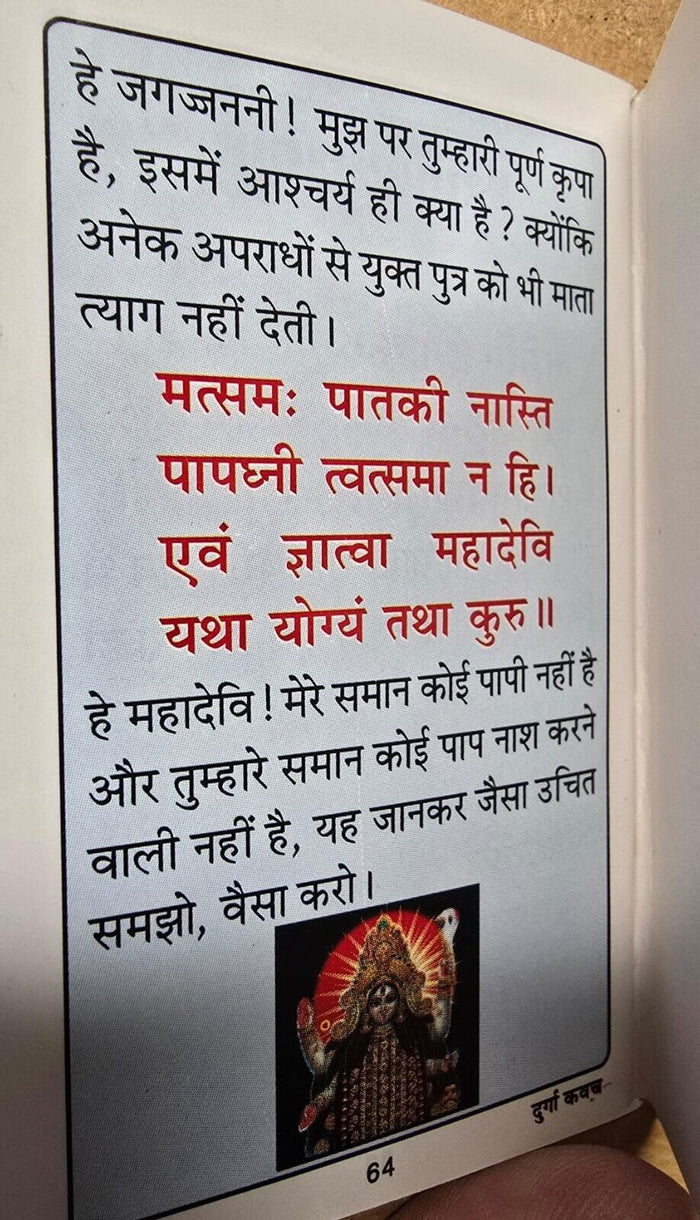 हे जगज्जननी! मुझ पर तुम्हारी पूर्ण कृपा
है, इसमें आश्चर्य ही क्या है? क्योंकि
अनेक अपराधों से युक्त पुत्र को भी माता
त्याग नहीं देती।
मत्समः पातकी नास्ति
पापघ्नी त्वत्समा न हि।
एवं ज्ञात्वा महादेवि
यथा योग्यं तथा कुरु॥
हे महादेवि! मेरे समान कोई पापी नहीं है
और तुम्हारे समान कोई पाप नाश करने
वाली नहीं है, यह जानकर जैसा उचित
समझो, वैसा करो।
दुर्गा कवच
64